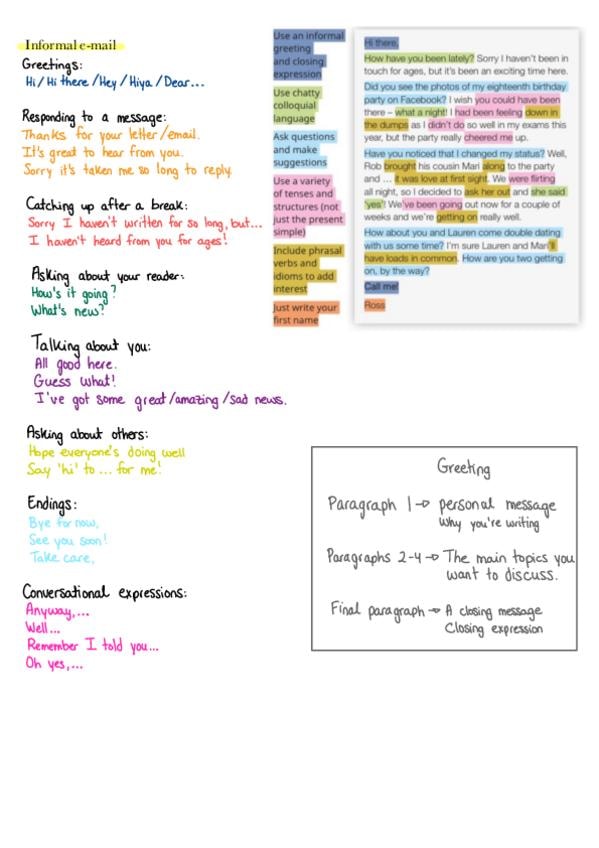 Informal e-mail
Greetings:
Hi / Hi there / Hey / Hiya / Dear...
Responding to a message:
Thanks for your letter/email.
It's great to hear from you.
Sorry it's taken me so long to reply.
Catching up after a break:
Sorry I haven't written for so long, but...
I haven't heard from you for ages!
Asking about your reader:
How's it going?
What's new?
Talking about you:
All good here.
Guess what!
I've got some great/amazing/sad news.
Asking about others:
Hope everyone's doing well
Say 'hi' to ... for me!
Endings:
Bye for now,
See you soon!
Take care,
Conversational expressions:
Anyway,...
Well...
Remember I told you...
Oh yes,...
Use an informal
greeting
and closing
expression
Use chatty
colloquial
language
Ask questions
and make
suggestions
Use a variety
of tenses and
structures (not
just the present
simple)
Include phrasal
verbs and
idioms to add
interest
Just write your
first name
Hi there,
How have you been lately? Sorry I haven't been in
touch for ages, but it's been an exciting time here.
Did you see the photos of my eighteenth birthday
party on Facebook? I wish you could have been
there – what a night! I had been feeling down in
the dumps as I didn't do so well in my exams this
year, but the party really cheered me up.
Have you noticed that I changed my status? Well,
Rob brought his cousin Mari along to the party
and ... it was love at first sight. We were flirting
all night, so I decided to ask her out and she said
'yes'! We've been going out now for a couple of
weeks and we're getting on really well.
How about you and Lauren come double dating
with us some time? I'm sure Lauren and Mari'll
have loads in common. How are you two getting
on, by the way?
Call me!
Ross
Greeting
Paragraph 1 → personal message
Why you're writing
Paragraphs 2-4 → The main topics you
want to discuss.
Final paragraph → A closing message
Closing expression